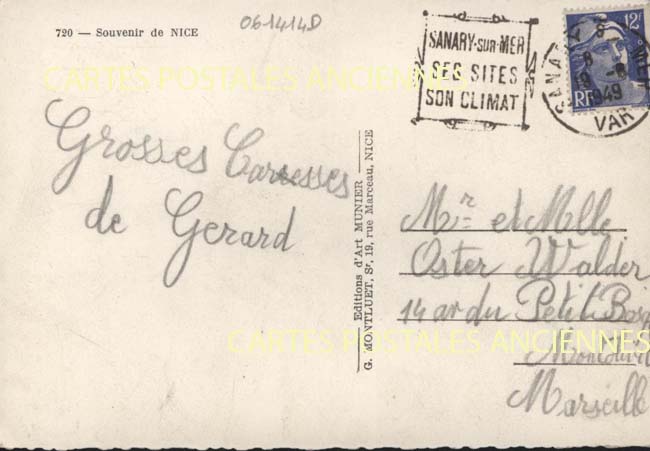 720 — Souvenir de NICE
06-1414D
SANARY-SUR-MER
SES SITES
SON CLIMAT
12F
RF
SANARY
8
19 -8
1949
VAR
CARTES POSTALES ANCIENNES
Grosses Caresses
de Gerard
Editions d'Art MUNIER
G. MONTLUET, Sr, 19, rue Marceau, NICE
Mr et Mlle
Oster Walder
14 av du Petit Bos
Marseille
CARTES POSTALES ANCIENNES